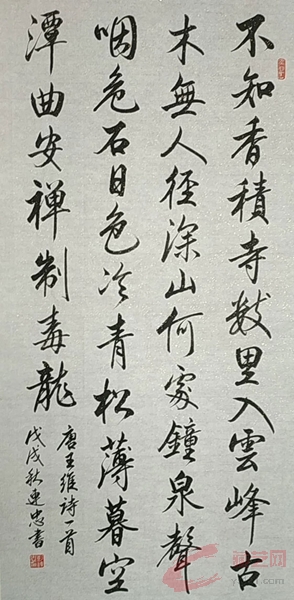 不知香積寺數里入雲峰古
木無人徑深山何處鐘泉聲
咽危石日色冷青松薄暮空
潭曲安禪制毒龍
唐王維詩一首
戊戌秋連忠書